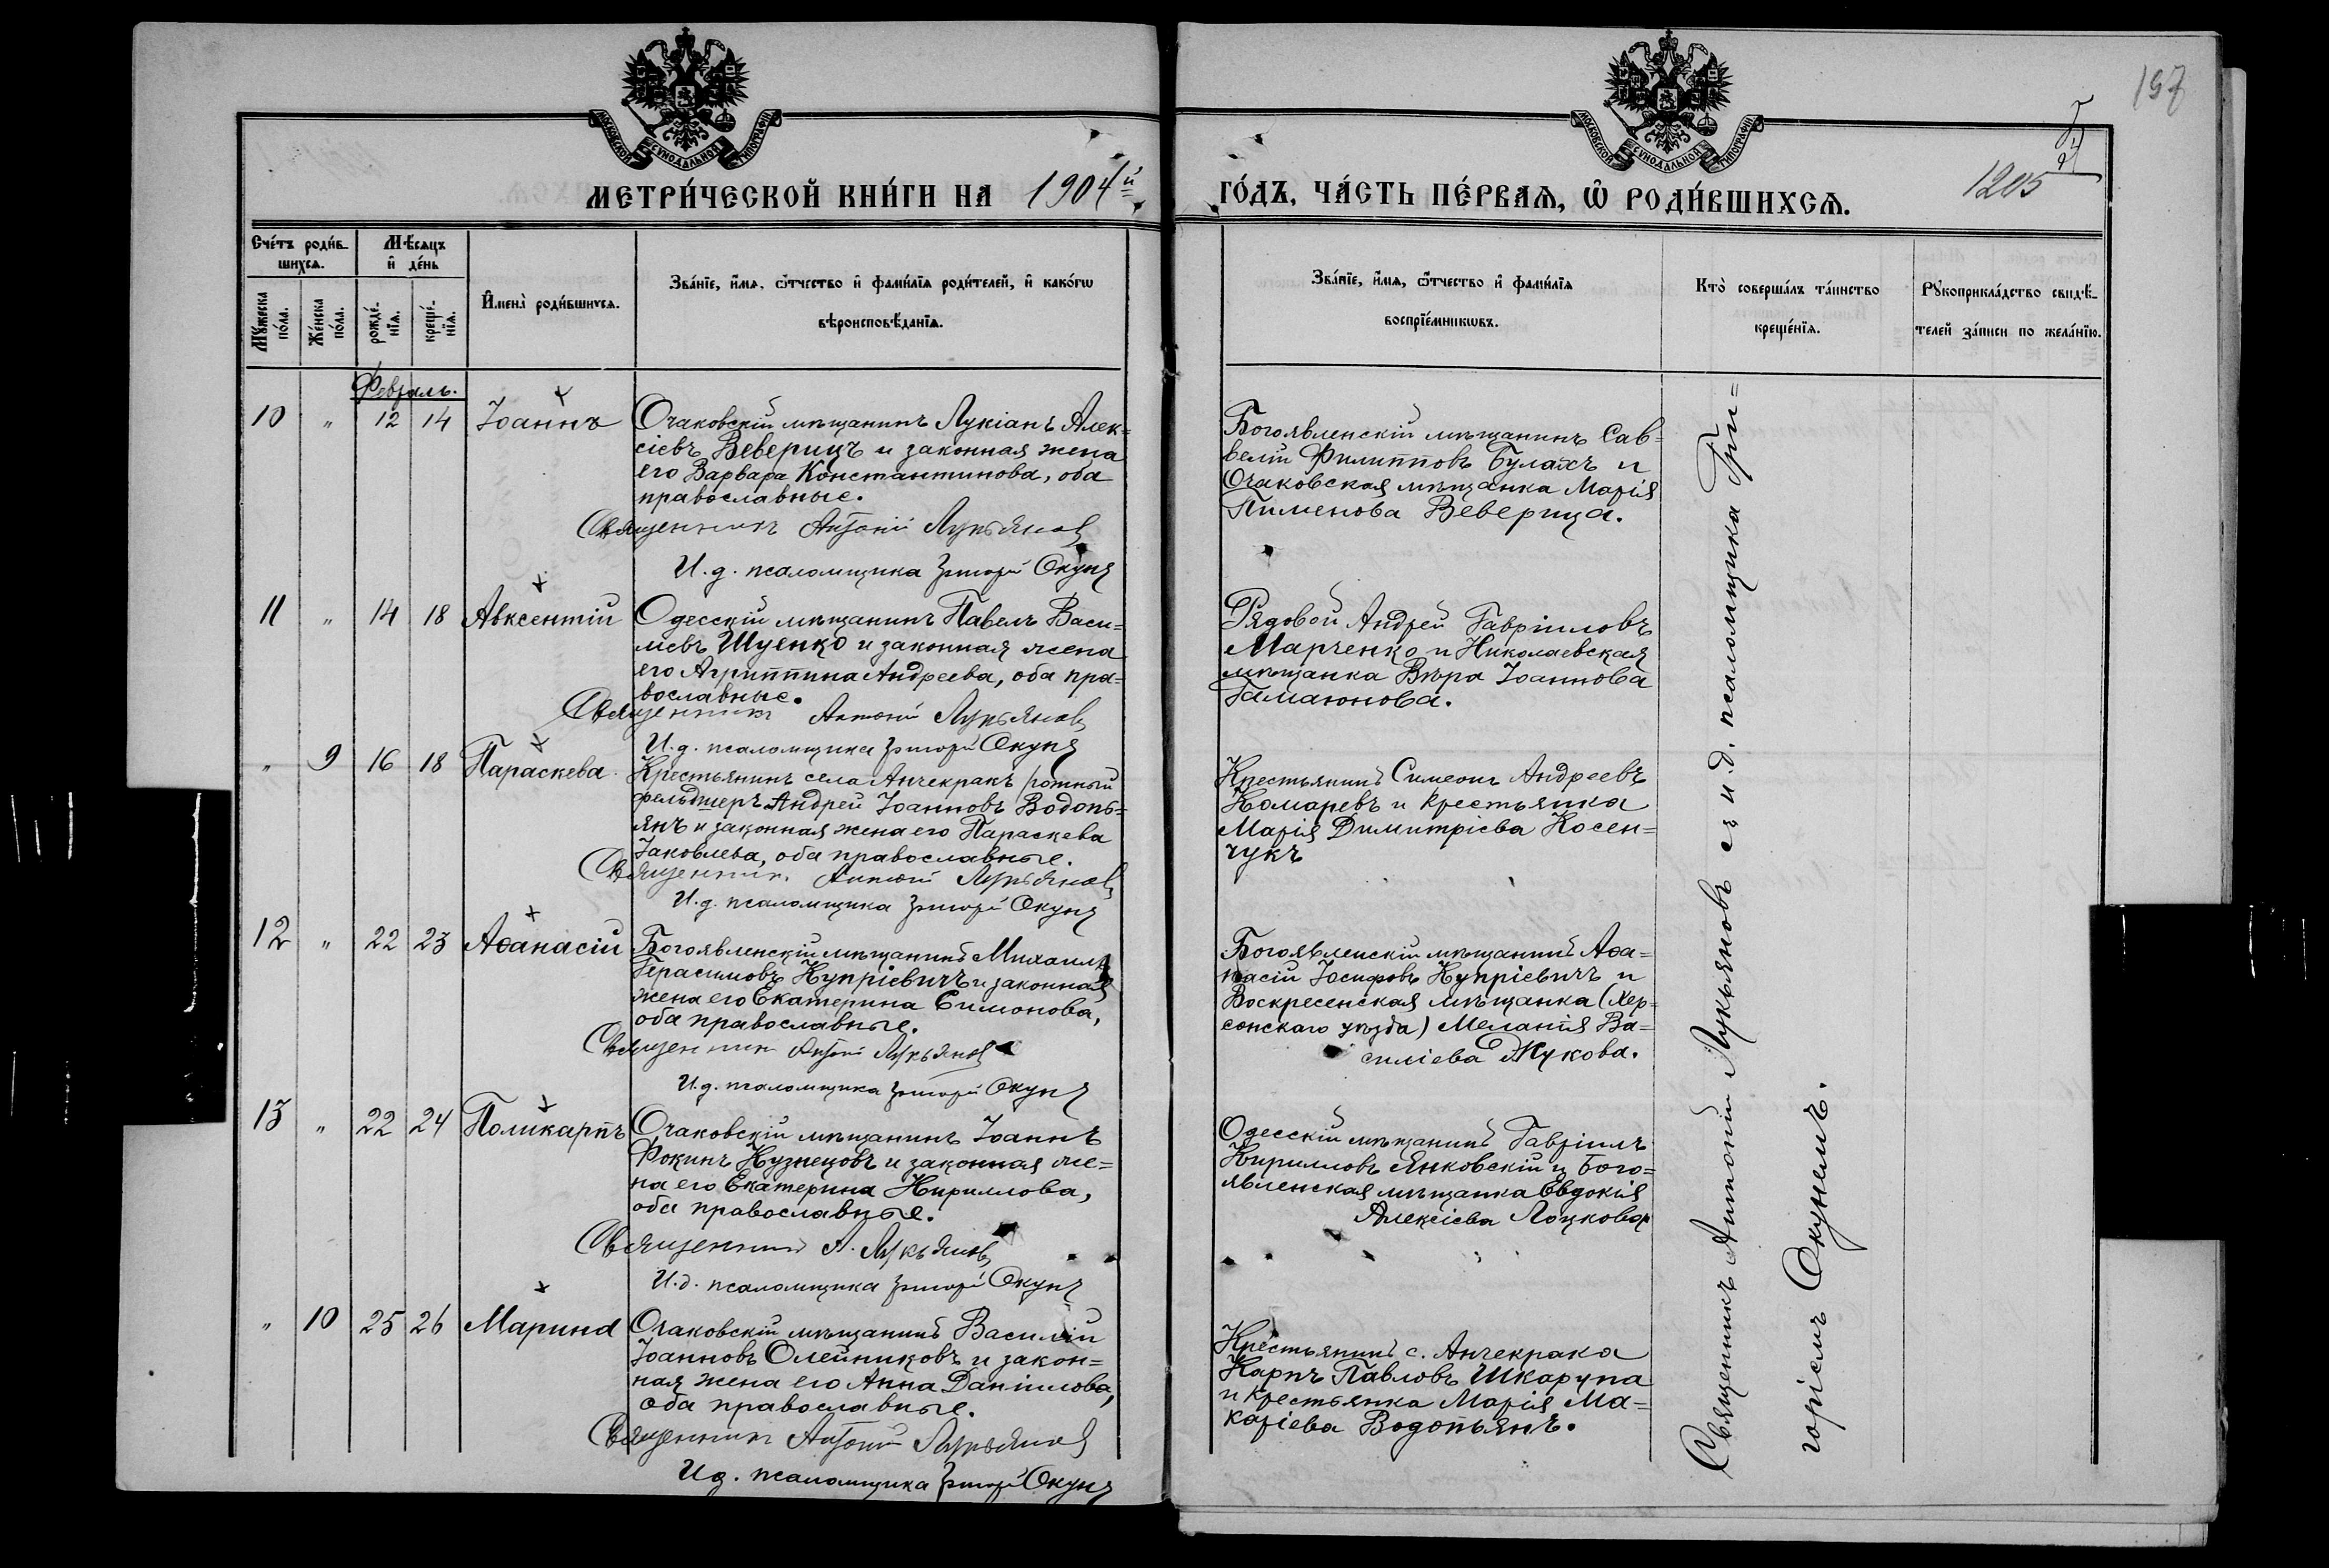 197
МОСКОВСКОЙ СѴНОДАЛЬНОЙ ТИПОГРАФІИ
МОСКОВСКОЙ СѴНОДАЛЬНОЙ ТИПОГРАФІИ
МЕТРИ́ЧЕСКОЙ КНИ́ГИ НА 1904й ГО́ДЪ, ЧА́СТЬ ПЕ́РВАѦ, Ѡ҆ РОДИ́ВШИХСѦ.
1205
Сче́тъ роди́в-
шихсѧ.
Мѣ́сѧцъ
и҆ де́нь
Мꙋ́жеска по́ла.
Же́нска по́ла.
рожде́-
нїѧ.
креще́-
нїѧ.
И҆мена̀ роди́вшихсѧ.
Зва́нїе, и҆́мѧ, ѻ҆́тчество и҆ фамѝлїѧ роди́телей, и҆ како́гѡ
вѣроисповѣ́данїѧ.
Зва́нїе, и҆́мѧ, ѻ҆́тчество и҆ фамѝлїѧ
воспрїе́мникѡвъ.
Кто̀ соверша́лъ та́инство
креще́нїѧ.
Рꙋкоприкла́дство свидѣ́-
телей за́писи по жела́нїю.
Февраль.
10 " 12 14 Іоаннъ
Очаковскій мѣщанинъ Лукіанъ Алек=
сіевъ Веверицъ и законная жена
его Варвара Константинова, оба
православные.
Священникъ Антоній Лукьяновъ
И.д. псаломщика Григорій Окунь
Богоявленскій мѣщанинъ Сав=
велій Филипповъ Булахъ и
Очаковская мѣщанка Марія
Пименова Веверица.
11 " 14 18 Авксентій
Одесскій мѣщанинъ Павелъ Васи=
ліевъ Шуенко и законная жена
его Агриппина Андреева, оба пра=
вославные.
Священникъ Антоній Лукьяновъ
И.д. псаломщика Григорій Окунь
Рядовой Андрей Гавріиловъ
Марченко и Николаевская
мѣщанка Вѣра Іоаннова
Гамаюнова.
" 9 16 18 Параскева
Крестьянинъ села Анчекракъ ротный
фельдшеръ Андрей Іоанновъ Водопь=
янъ и законная жена его Параскева
Іаковлева, оба православные.
Священникъ Антоній Лукьяновъ
И.д. псаломщика Григорій Окунь
Крестьянинъ Симеонъ Андреевъ
Комаревъ и крестьянка
Марія Димитріева Косен=
чукъ
12 " 22 23 Аѳанасій
Богоявленскій мѣщанинъ Михаилъ
Герасимовъ Купріевичъ и законная
жена его Екатерина Симонова,
оба православные.
Священникъ Антоній Лукьяновъ
И.д. псаломщика Григорій Окунь
Богоявленскій мѣщанинъ Аѳа=
насій Іосифовъ Купріевичъ и
Воскресенская мѣщанка (Хер=
сонскаго уѣзда) Меланія Ва=
силіева Жукова.
13 " 22 24 Поликарпъ
Очаковскій мѣщанинъ Іоаннъ
Фокинъ Кузнецовъ и законная же=
на его Екатерина Кириллова,
оба православные.
Священникъ А. Лукьяновъ
И.д. псаломщика Григорій Окунь
Одесскій мѣщанинъ Гавріилъ
Кирилловъ Янковскій и Бого=
явленская мѣщанка Евдокія
Алексіева Лоцкова
" 10 25 26 Марина
Очаковскій мѣщанинъ Василій
Іоанновъ Олейниковъ и закон=
ная жена его Анна Даніилова,
оба православные.
Священникъ Антоній Лукьяновъ
И.д. псаломщика Григорій Окунь
Крестьянинъ с. Анчекрака
Карпъ Павловъ Шкарупа
и крестьянка Марія Ма=
каріева Водопьянъ.
Священникъ Антоній Лукьяновъ съ и.д. псаломщика Гри=
горіемъ Окунемъ.